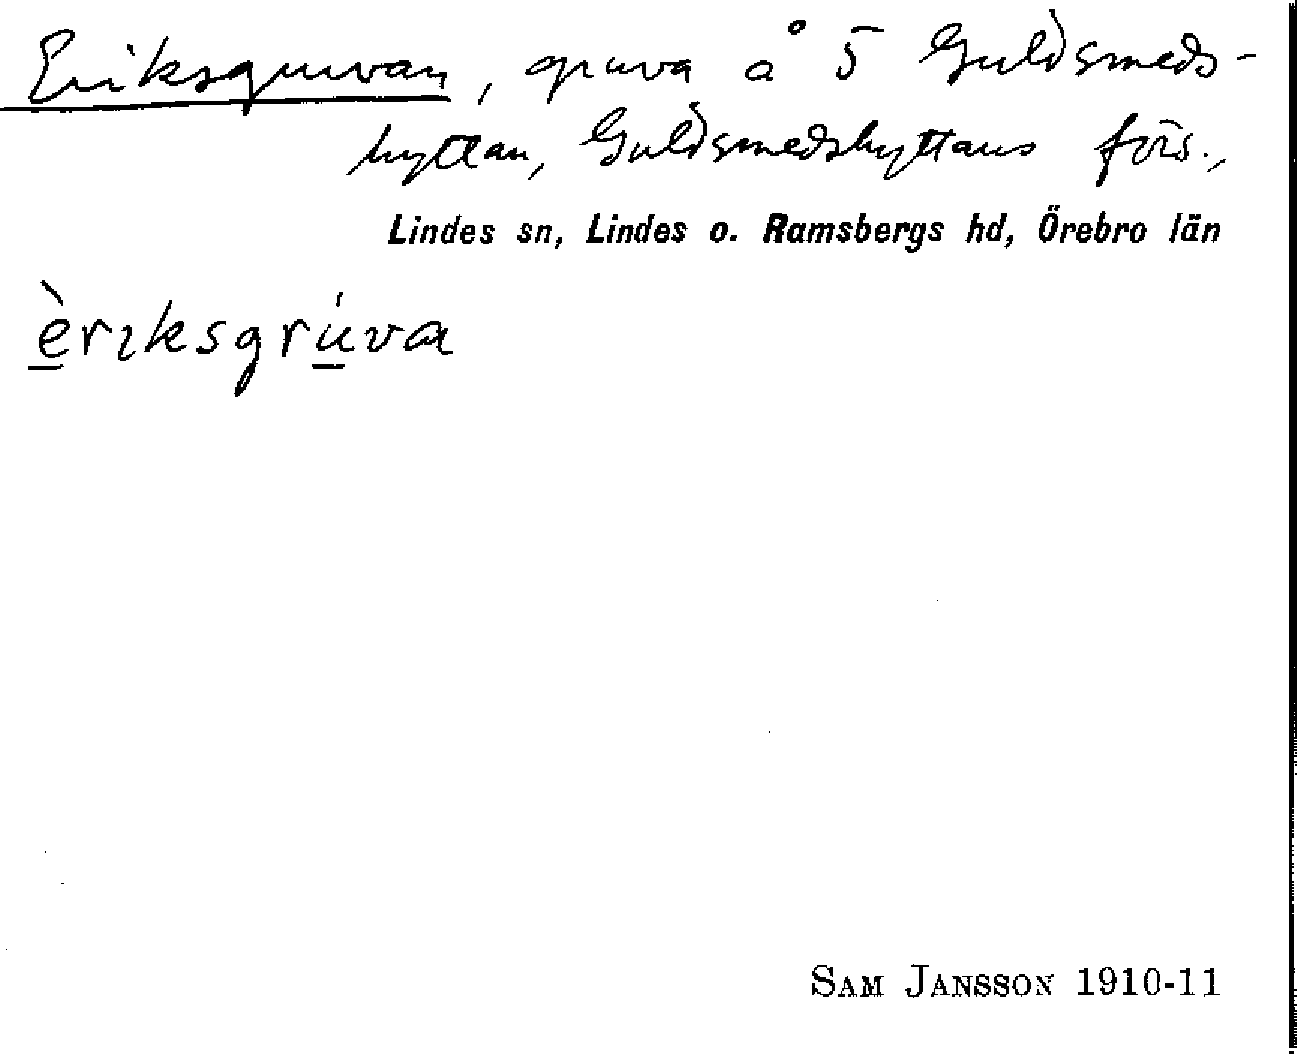 Eriksgruvan, gruva å 5 Guldsmeds-
hyttan, Guldsmedshyttans förs.,
Lindes sn, Lindes o. Ramsbergs hd, Örebro län
èrıksgrúva
SAM JANSSON 1910-11